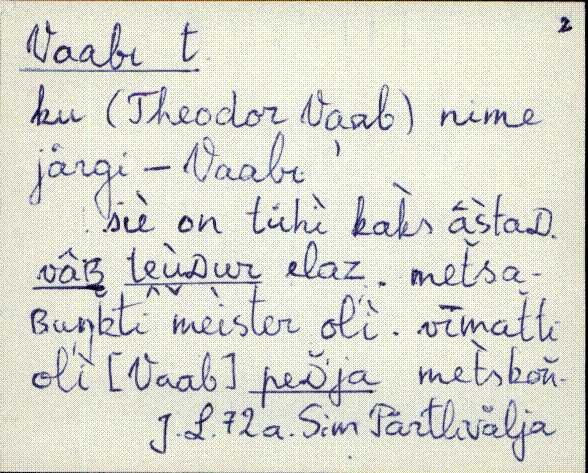 2
Vaabi t
ku (Theodor Vaab) nime
järgi – Vaabi
siè on tühì kàks ầstaD.
vâB teùDur elaz. metsa-
Buŋkti mèister olì. vīmatti
olì [Vaab] peĎja metskoñ-
J. L. 72 a. Sim Pärtlivälja